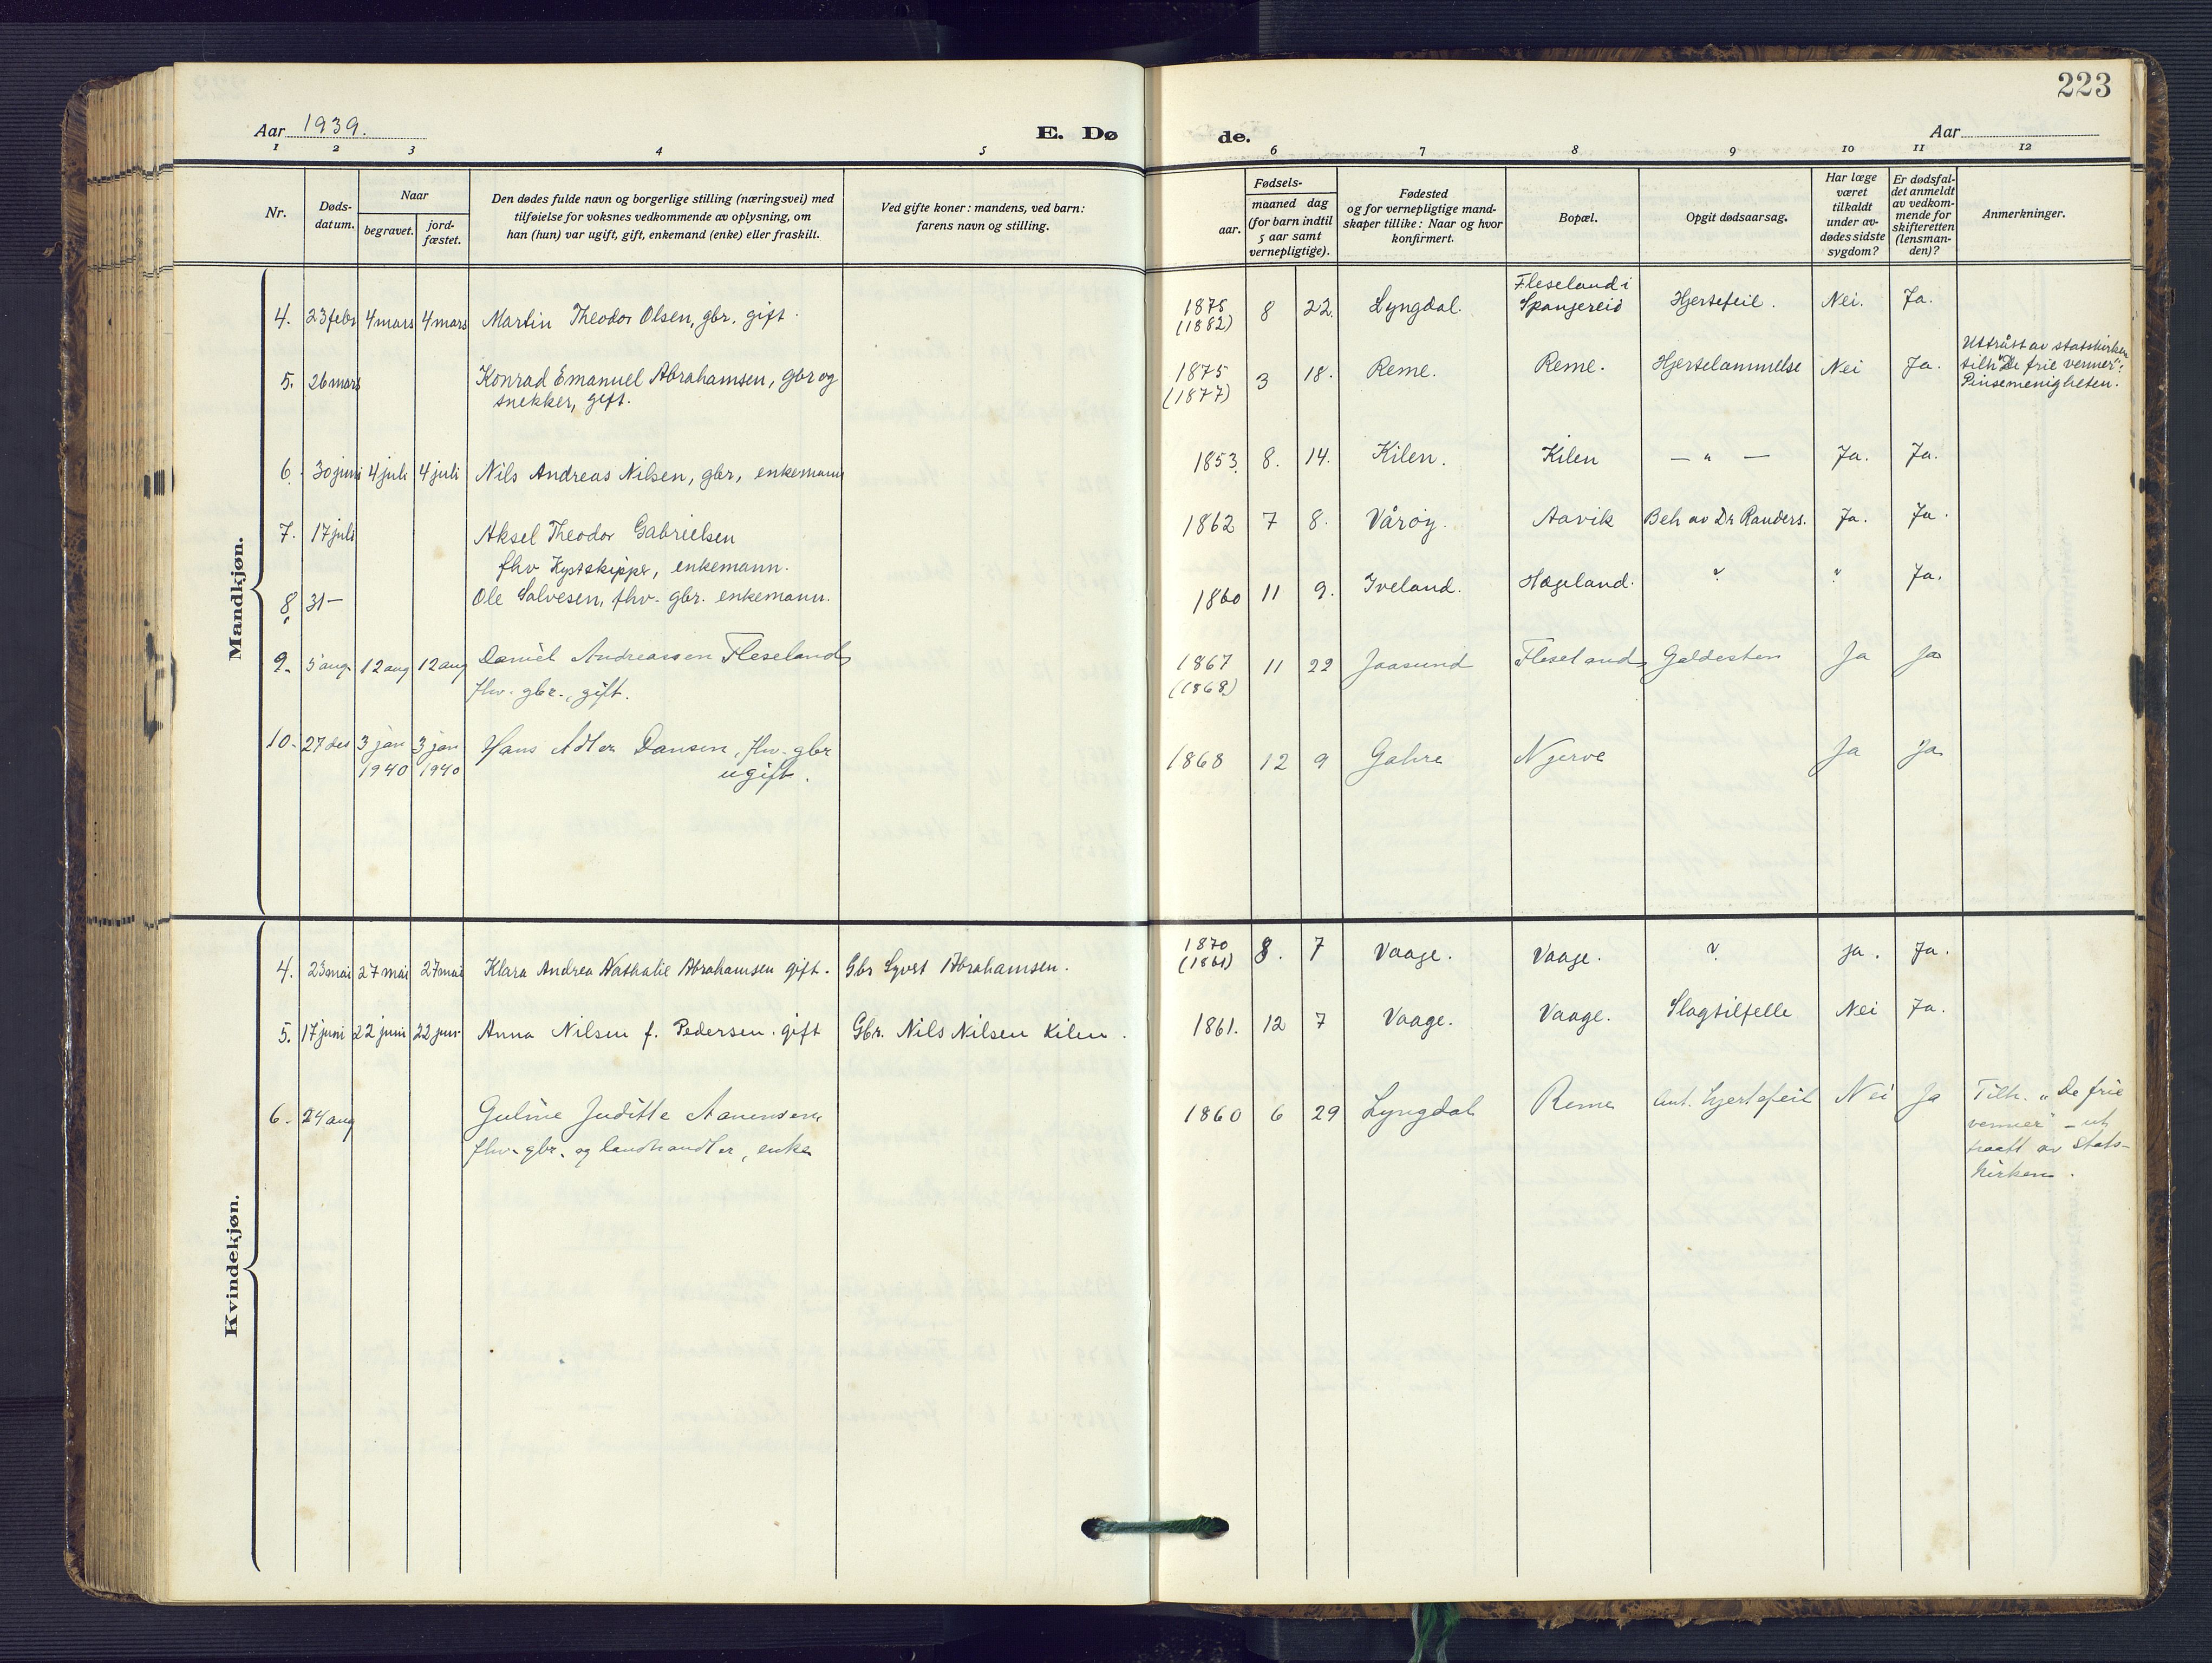 223
Aar 1939.
E. Dø
de.
Aar
1 2 3 4 5 6 7 8 9 10 11 12
Nr.
Døds-
datum.
Naar
begravet.
jord-
fæstet.
Den dødes fulde navn og borgerlige stilling (næringsvei) med
tilføielse for voksnes vedkommende av oplysning, om
han (hun) var ugift, gift, enkemand (enke) eller fraskilt.
Ved gifte koner: mandens, ved barn:
farens navn og stilling.
Fødsels-
aar.
maaned dag
(for barn indtil
5 aar samt
vernepligtige).
Fødested
og for vernepligtige mand-
skaper tillike: Naar og hvor
konfirmert.
Bopæl.
Opgit dødsaarsag.
Har læge
været
tilkaldt
under av-
dødes sidste
sygdom?
Er dødsfal-
det anmeldt
av vedkom-
mende for
skifteretten
(lensman-
den)?
Anmerkninger.
Mandkjøn.
4. 23 febr 4 mars 4 mars Martin Theodor Olsen, gbr. gift. 1878 (1882) 8 22. Lyngdal. Fleseland i
Spangereid Hjertefeil. Nei. Ja.
5. 26 mars Konrad Emanuel Abrahamsen, gbr og
snekker, gift. 1875 (1877) 3 18. Reme. Reme. Hjertelammelse Nei Ja. Uttrått av statskirken
tilh "De frie venner":
Pinsemenigheten.
6. 30 juni 4 juli 4 juli Nils Andreas Nilsen, gbr, enkemann 1853. 8. 14. Kilen. Kilen — " — Ja. Ja.
7. 17 juli Aksel Theodor Gabrielsen
fhv Kystskipper, enkemann. 1862 7 8. Vårøy. Aavik Beh av Dr Randers. Ja. Ja.
8. 31 — Ole Salvesen, fhv. gbr. enkemann. 1860 11 9. Iveland. Hægeland. ? " Ja.
9. 5 aug. 12 aug 12 aug Daniel Andreassen Fleseland,
fhv. gbr., gift. 1867 (1868) 11 22 Jaasund Fleseland Galdesten Ja Ja
10. 27 des 3 jan
1940 3 jan
1940 Hans Adler Dansen, fhv. gbr
ugift. 1868 12 9 Gahre Njerve Ja Ja
Kvindekjøn.
4. 23 mai 27 mai 27 mai Klara Andrea Nathalie Abrahamsen gift. Gbr Syvert Abrahamsen. 1870 (1861) 8. 7 Vaage. Vaage. ? ja. Ja.
5. 17 juni 22 juni 22 juni Anna Nilsen f. Pedersen. gift Gbr. Nils Nilsen Kilen. 1861. 12 7 Vaage. Vaage. Slagtilfelle Nei Ja.
6. 24 aug Guline Juditte Aanensen,
fhv. gbr. og landhandler, enke 1860 6 29 Lyngdal Reme Ant. hjertefeil Nei Ja Tilh. "De frie
venner" — ut
traatt av Stats-
kirken.